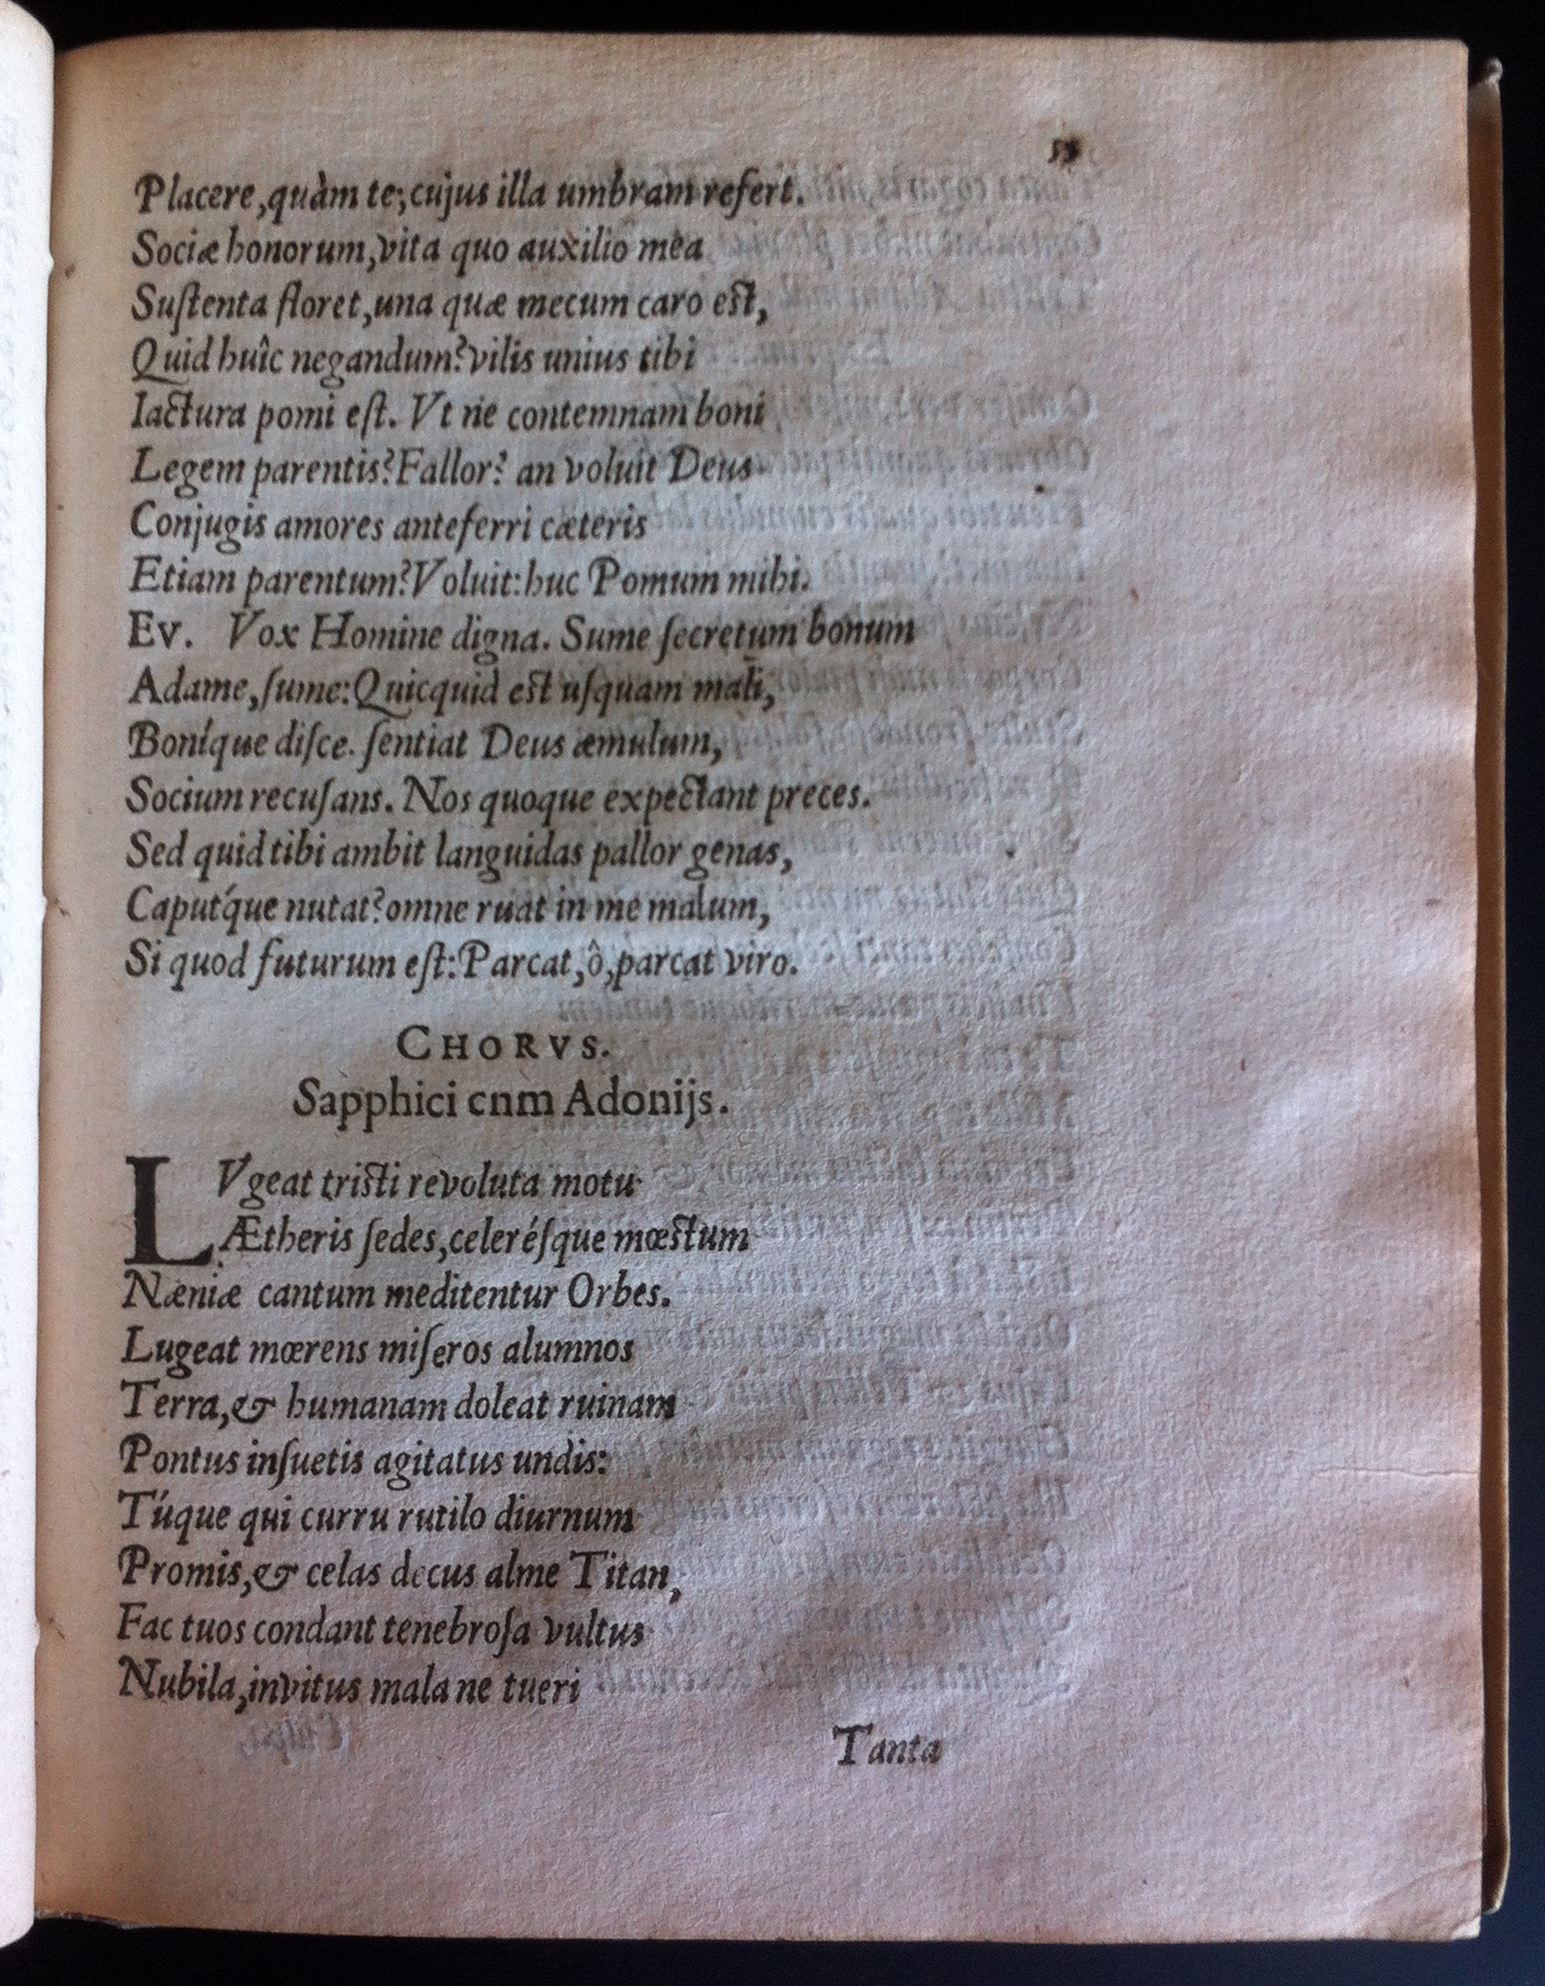 Placere, quàm te; cujus illa umbram refert.
Sociæ honorum, vita quo auxilio mea
Suſtenta floret, una quæ mecum caro eſt,
Quid huîc negandum? vilis unius tibi
Iactura pomi eſt. Vt ne contemnam boni
Legem parentis? Fallor? an voluit Deus
Conjugis amores anteferri cæteris
Etiam parentum? Voluit: huc Pomum mihi.
Ev. Vox Homine digna. Sume ſecretum bonum
Adame, ſume: Quicquid eſt uſquam mali,
Boníque diſce. ſentiat Deus æmulum,
Socium recuſans. Nos quoque expectant preces.
Sed quid tibi ambit languidas pallor genas,
Capút́que nutat? omne ruat in me malum,
Si quod futurum eſt: Parcat, ô, parcat viro.
CHORVS.
Sapphici cnm Adonijs.
LVgeat triſti revoluta motu
Ætheris ſedes, celeréſque mœſtum
Næniæ cantum meditentur Orbes.
Lugeat mœrens miſeros alumnos
Terra, & humanam doleat ruinam
Pontus inſuetis agitatus undis:
Túque qui curru rutilo diurnum
Promis, & celas decus alme Titan,
Fac tuos condant tenebroſa vultus
Nubila, invitus mala ne tueri
Tanta